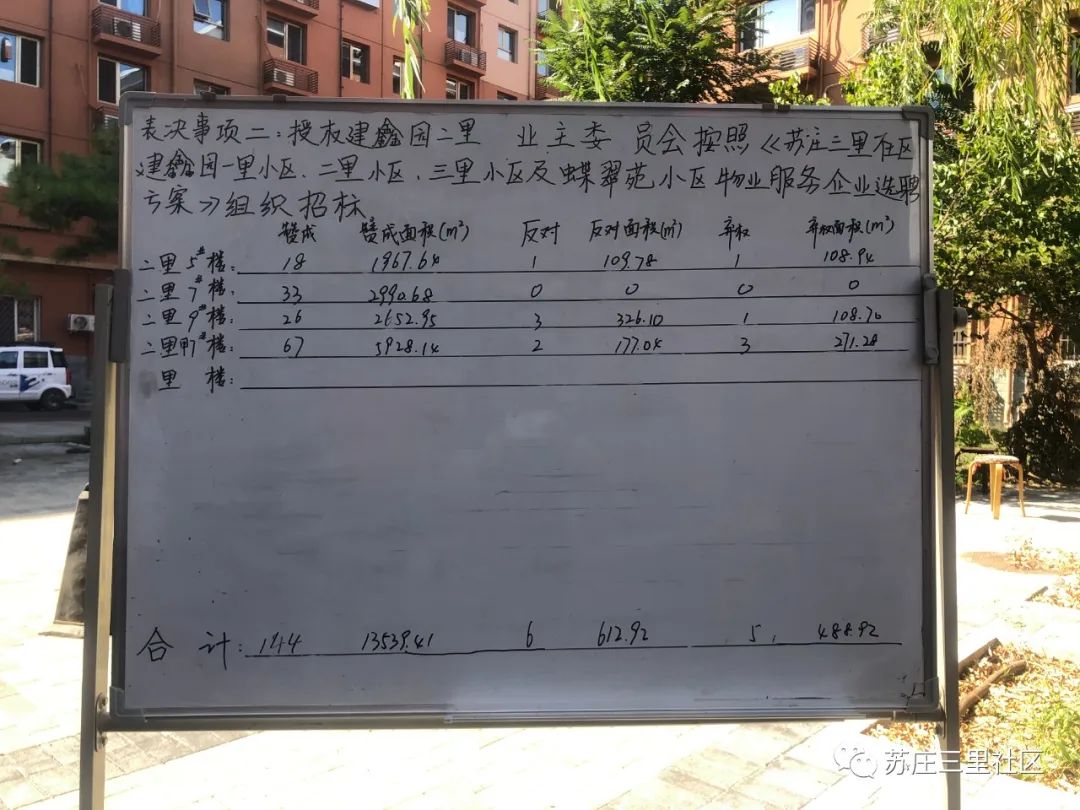 表决事项二:授权建鑫园二里 业主委员会按照《苏庄三里社区
建鑫园一里小区、二里小区、三里小区及蝶翠苑小区物业服务企业选聘
方案》组织招标
赞成 赞成面积(m²) 反对 反对面积(m²) 弃权 弃权面积(m²)
二里5#楼: 18 1967.64 1 109.78 1 108.94
二里7#楼: 33 2990.68 0 0 0 0
二里9#楼: 26 2652.95 3 326.10 1 108.70
二里甲7#楼: 67 5928.14 2 177.04 3 271.28
里 楼:
合 计: 144 13539.41 6 612.92 5 488.92
苏庄三里社区